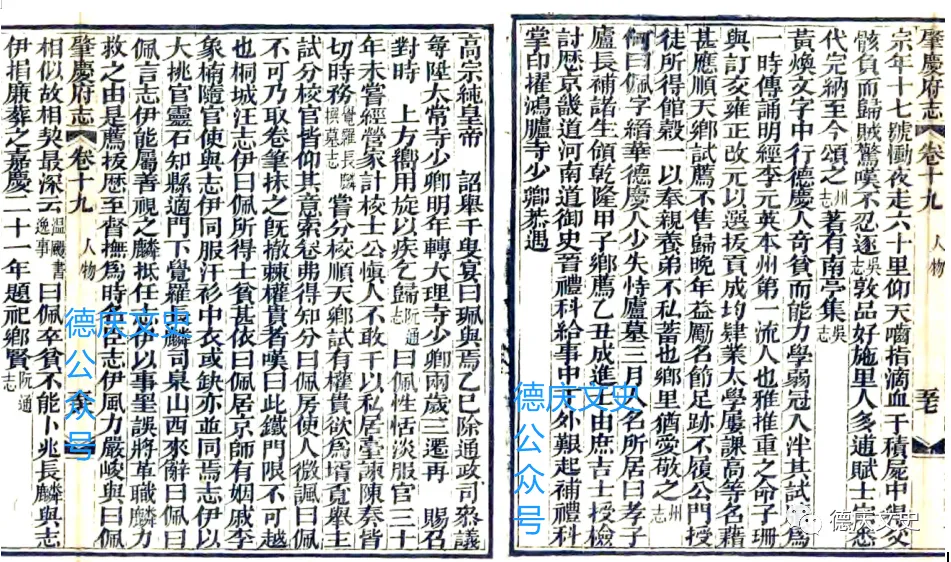 肇慶府志 卷十九 人物
宗年十七號慟夜走六十里仰天嚙指滴血于積屍中得父
骸負而歸賊驚嘆不忍逐吳志敦品好施里人多逋賦士宗悉
代完納至今頌之州志著有南亭集吳志
黃煥文字中行德慶人奇貧而能力學弱冠入泮其試卷為
一時傳誦明經李元英本州第一流人也雅推重之命子珊
與訂交雍正改元以選拔貢成均肄業太學屢課高等名藉
甚應順天鄉試薦不售歸晚年益勵名節足跡不履公門授
徒所得館穀一以奉親養弟不私蓄也鄉里猶愛敬之州志
何曰佩字縉華德慶人少失恃廬墓三月人名所居曰孝子
廬長補諸生領乾隆甲子鄉薦乙丑成進士由庶吉士授檢
討歷京畿道河南道御史晉禮科給事中丁外艱起補禮科
掌印擢鴻臚寺少卿恭遇
高宗純皇帝 詔舉千叟宴曰珮與焉乙巳除通政司叅議
尋陞太常寺少卿明年轉大理寺少卿兩歲三遷再 賜召
對時 上方嚮用旋以疾乞歸阮通志曰佩性恬淡服官三十
年未嘗經營家計校士公慎人不敢干以私居臺諫陳奏皆
切時務覺羅長麟撰墓志嘗分校順天鄉試有權貴欲為壻覓舉主
試分校官皆仰其意索卷弗得知分曰佩房使人微諷曰佩
不可乃取卷筆抹之既撤棘權貴者嘆曰此鐵門限不可越
也桐城汪志伊曰佩所得士貧甚依曰佩居京師有姻戚李
象楠隨官使與志伊同服汗衫中衣或缺亦並同焉志伊以
大挑官靈石知縣適門下覺羅長麟司臬山西來辭曰佩曰
佩言志伊能屬善視之麟抵任志伊以事罣誤將革職麟力
救之由是薦拔歷至督撫為時名臣志伊風力嚴峻與曰佩
肇慶府志 卷十九 人物
相似故相契最深云溫颺書逸事曰佩卒貧不能卜兆長麟與志
伊捐廉葬之嘉慶二十一年題祀鄉賢阮通志
德庆文史
公众号
德庆文史
公众号
德庆文史